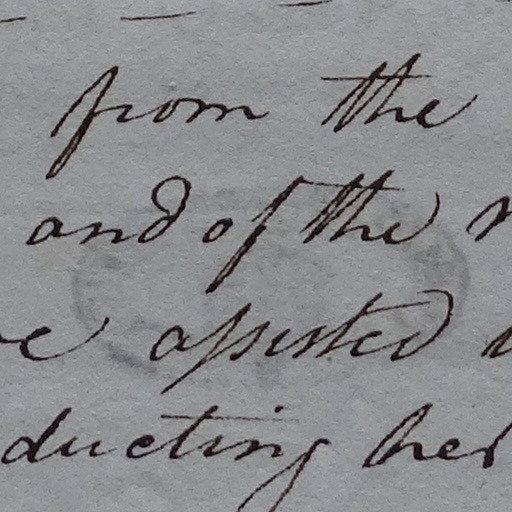 from the
and of the
assisted
ducting her